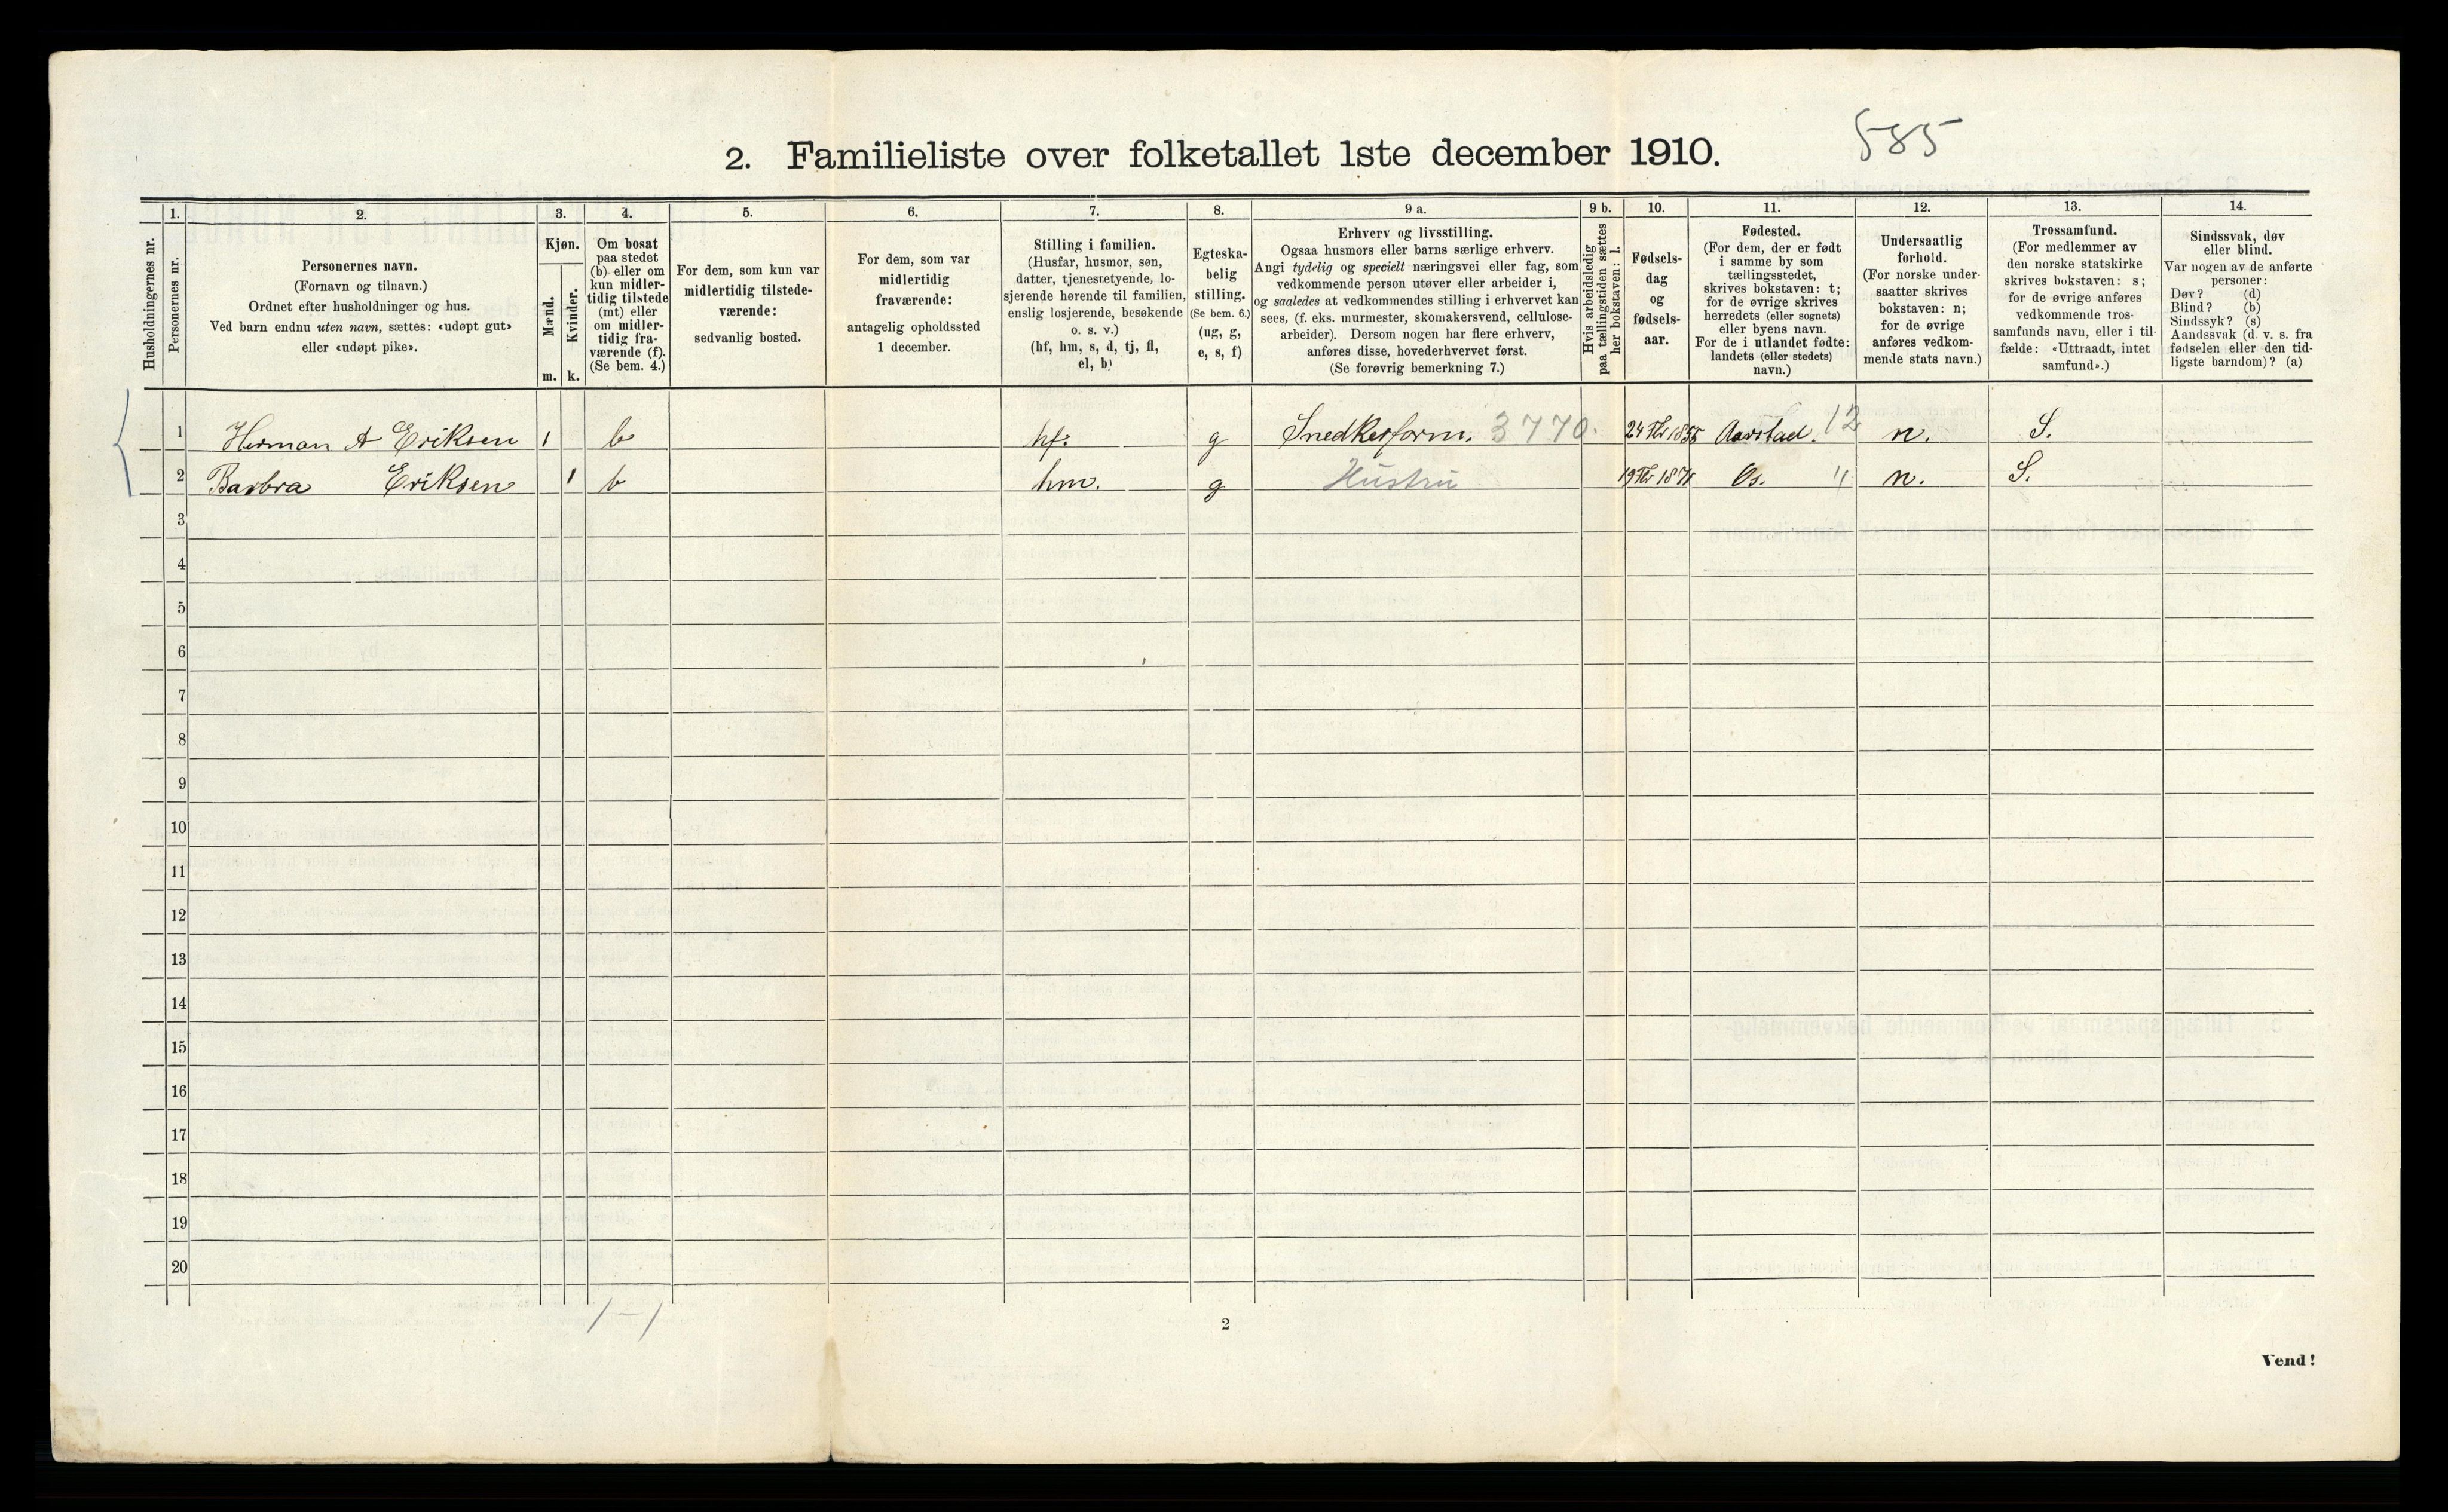 585
2. Familieliste over folketallet 1ste december 1910.
Husholdningernes nr.
1.
Personernes nr.
2.
Personernes navn.
(Fornavn og tilnavn.)
Ordnet efter husholdninger og hus.
Ved barn endnu uten navn, sættes: «udøpt gut»
eller «udøpt pike».
3.
Kjøn.
Mænd.
Kvinder.
m. k.
4.
Om bosat
paa stedet
(b) eller om
kun midler-
tidig tilstede
(mt) eller
om midler-
tidig fra-
værende (f).
(Se bem. 4.)
5.
For dem, som kun var
midlertidig tilstede-
værende:
sedvanlig bosted.
6.
For dem, som var
midlertidig
fraværende:
antagelig opholdssted
1 december.
7.
Stilling i familien.
(Husfar, husmor, søn,
datter, tjenestetyende, lo-
sjerende hørende til familien,
enslig losjerende, besøkende
o. s. v.)
(hf, hm, s, d, tj, fl,
el, b)
8.
Egteska-
belig
stilling.
(Se bem. 6.)
(ug, g,
e, s, f)
9 a.
Erhverv og livsstilling.
Ogsaa husmors eller barns særlige erhverv.
Angi tydelig og specielt næringsvei eller fag, som
vedkommende person utøver eller arbeider i,
og saaledes at vedkommendes stilling i erhvervet kan
sees, (f. eks. murmester, skomakersvend, cellulose-
arbeider). Dersom nogen har flere erhverv,
anføres disse, hovederhvervet først.
(Se forøvrig bemerkning 7.)
9 b.
Hvis arbeidsledig
paa tællingstiden sættes
her bokstaven: l.
10.
Fødsels-
dag
og
fødsels-
aar.
11.
Fødested.
(For dem, der er født
i samme by som
tællingsstedet,
skrives bokstaven: t;
for de øvrige skrives
herredets (eller sognets)
eller byens navn.
For de i utlandet fødte:
landets (eller stedets)
navn.)
12.
Undersaatlig
forhold.
(For norske under-
saatter skrives
bokstaven: n;
for de øvrige
anføres vedkom-
mende stats navn.)
13.
Trossamfund.
(For medlemmer av
den norske statskirke
skrives bokstaven: s;
for de øvrige anføres
vedkommende tros-
samfunds navn, eller i til-
fælde: «Uttraadt, intet
samfund».)
14.
Sindssvak, døv
eller blind.
Var nogen av de anførte
personer:
Døv? (d)
Blind? (b)
Sindssyk? (s)
Aandssvak (d. v. s. fra
fødselen eller den tid-
ligste barndom)? (a)
1 Herman A Eriksen 1 b hf. g Snedkerform. 3770. 24 Fbr 1855 Aarstad. 12 n. S.
2 Barbra Eriksen 1 b hm. g Hustru 19 Fbr Os. " n. S.
3
4
5
6
7
8
9
10
11
12
13
14
15
16
17
18
19
20
1 – 1
2
Vend!